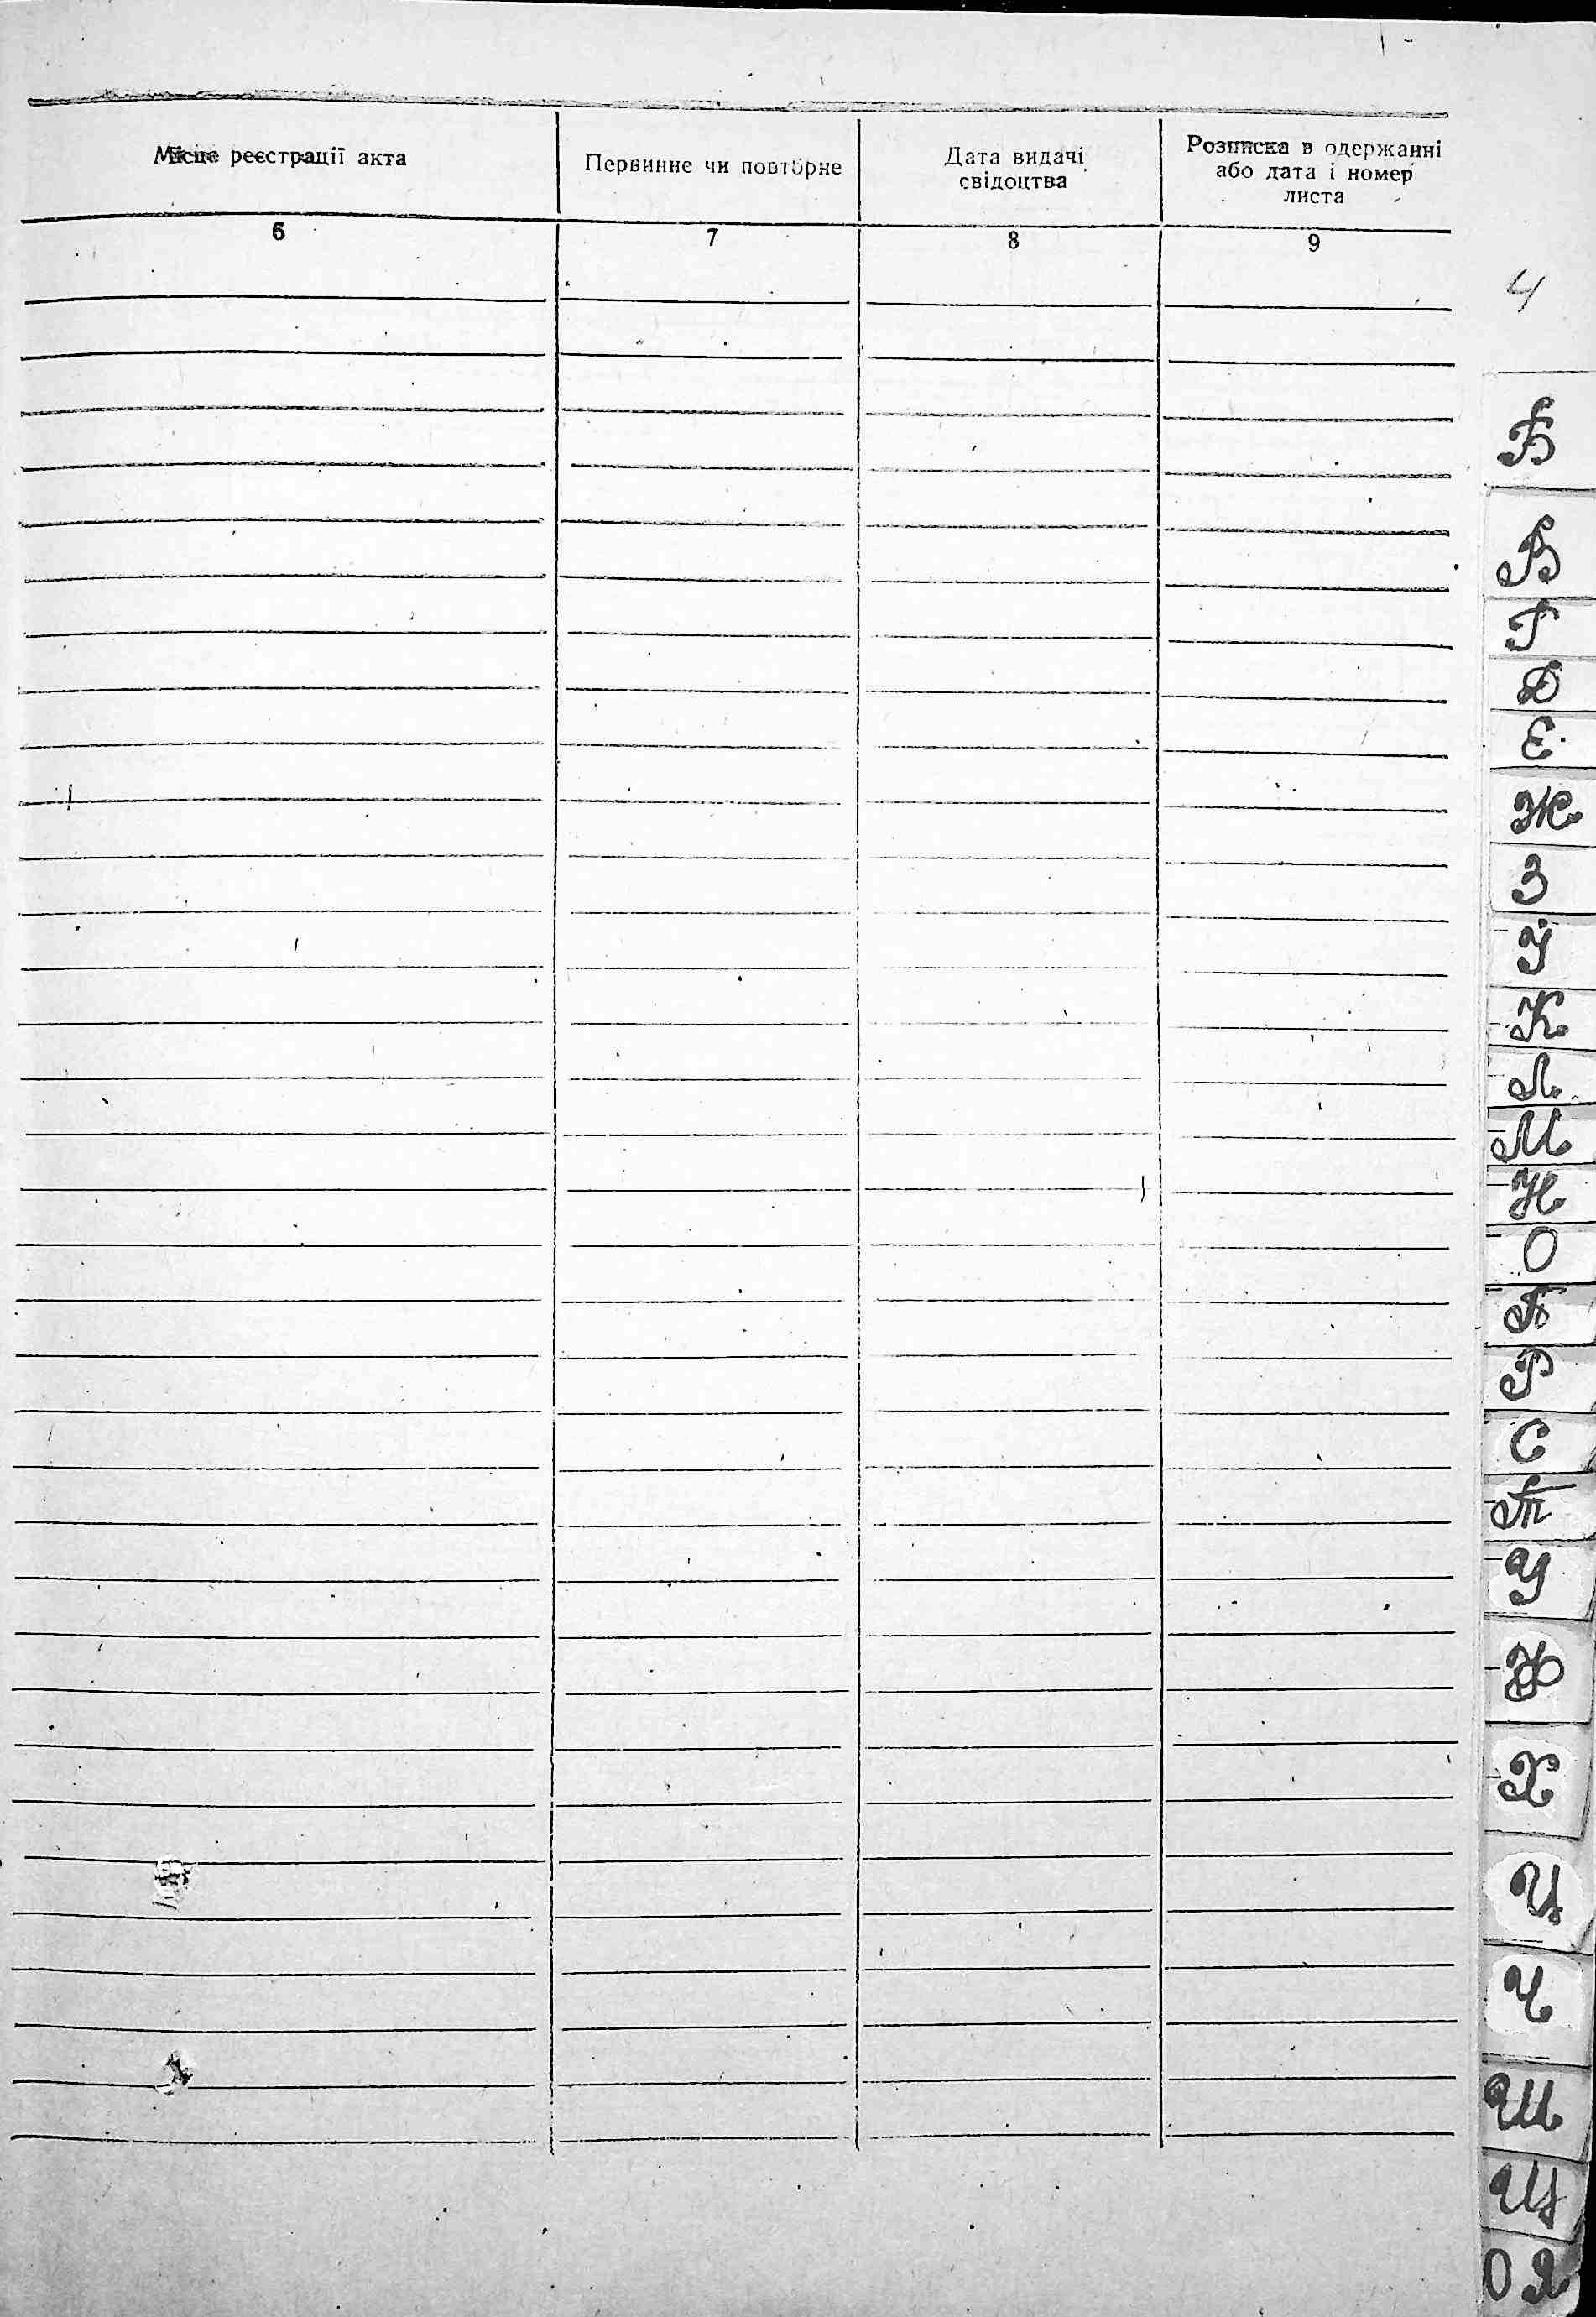 Місце реєстрації акта
Первинне чи повторне
Дата видачі
свідоцтва
Розписка в одержанні
або дата і номер
листа
6
7
8
9
4
Б
В
Г
Д
Е
Ж
З
І
К
Л
М
Н
О
П
Р
С
Т
У
Ф
Х
Ц
Ч
Ш
Щ
Я